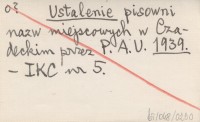 Ustalenie pisowni
nazw miejscowych w Cza-
deckim przez P.A.U. 1939.
- IKC nr 5.